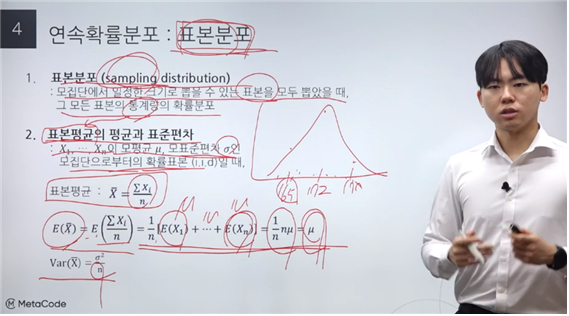 4
연속확률분포 : 표본분포
1. 표본분포 (sampling distribution)
: 모집단에서 일정한 크기로 뽑을 수 있는 표본을 모두 뽑았을 때,
그 모든 표본의 통계량의 확률분포
2. 표본평균의 평균과 표준편차
: X₁, ⋯ Xₙ이 모평균 μ, 모표준편차 σ인
모집단으로부터의 확률표본 (i.i.d)일 때,
165 172 178
표본평균 : X̄ = ΣXᵢ/n
μ ⋯ μ
E(X̄) = E(ΣXᵢ/n) = 1/n [E(X₁) + ⋯ + E(Xₙ)] = 1/n nμ = μ
Var(X̄) = σ²/n
MetaCode